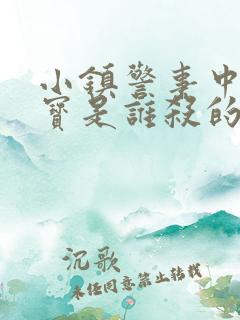 小鎮警事中
寶是誰殺的
沉歌
未经同意禁止转载